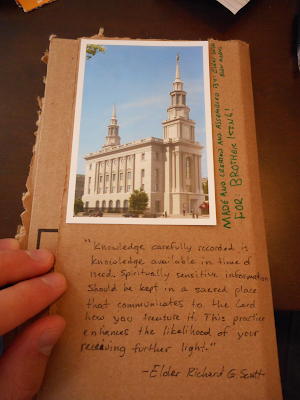 MADE AND CREATED AND ASSEMBLED BY: ELDER
FOR: BROTHER
"Knowledge carefully recorded is
knowledge available in time of
need. Spiritually sensitive information
should be kept in a sacred place
that communicates to the Lord
how you treasure it. This practice
enhances the likelihood of your
receiving further light."
-Elder Richard G. Scott